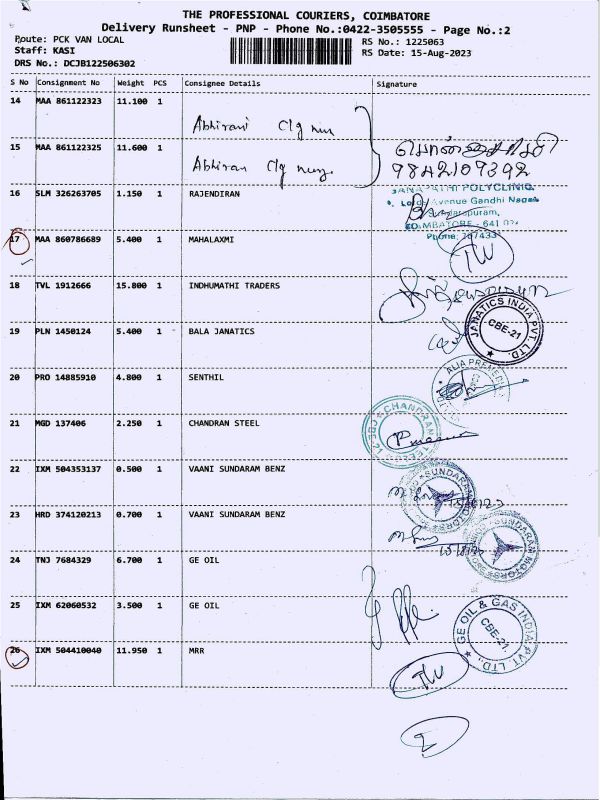 THE PROFESSIONAL COURIERS, COIMBATORE
Delivery Runsheet - PNP - Phone No.:0422-3505555 - Page No.:2
Route: PCK VAN LOCAL
RS No.: 1225063
Staff: KASI
RS Date: 15-Aug-2023
DRS No.: DCJB122506302
S No Consignment No Weight PCS Consignee Details Signature
14 MAA 861122323 11.100 1 Abhirami Clg
15 MAA 861122325 11.600 1 Abhiran Clg
9842107392
16 SLM 326263705 1.150 1 RAJENDIRAN
POLYCLINIC
Avenue Gandhi Nagar
COIMBATORE - 641
Phone:
17 MAA 860786689 5.400 1 MAHALAXMI
18 TVL 1912666 15.800 1 INDHUMATHI TRADERS
19 PLN 1450124 5.400 1 BALA JANATICS
JANATICS INDIA PVT. LTD.
CBE-21
20 PRO 14885910 4.800 1 SENTHIL
21 MGD 137406 2.250 1 CHANDRAN STEEL
CHANDRAN STEELS
22 IXM 504353137 0.500 1 VAANI SUNDARAM BENZ
SUNDARAM MOTORS
23 HRD 374120213 0.700 1 VAANI SUNDARAM BENZ
SUNDARAM MOTORS
24 TNJ 7684329 6.700 1 GE OIL
25 IXM 62060532 3.500 1 GE OIL
GE OIL & GAS INDIA PVT. LTD.,
CBE-21
26 IXM 504410040 11.950 1 MRR